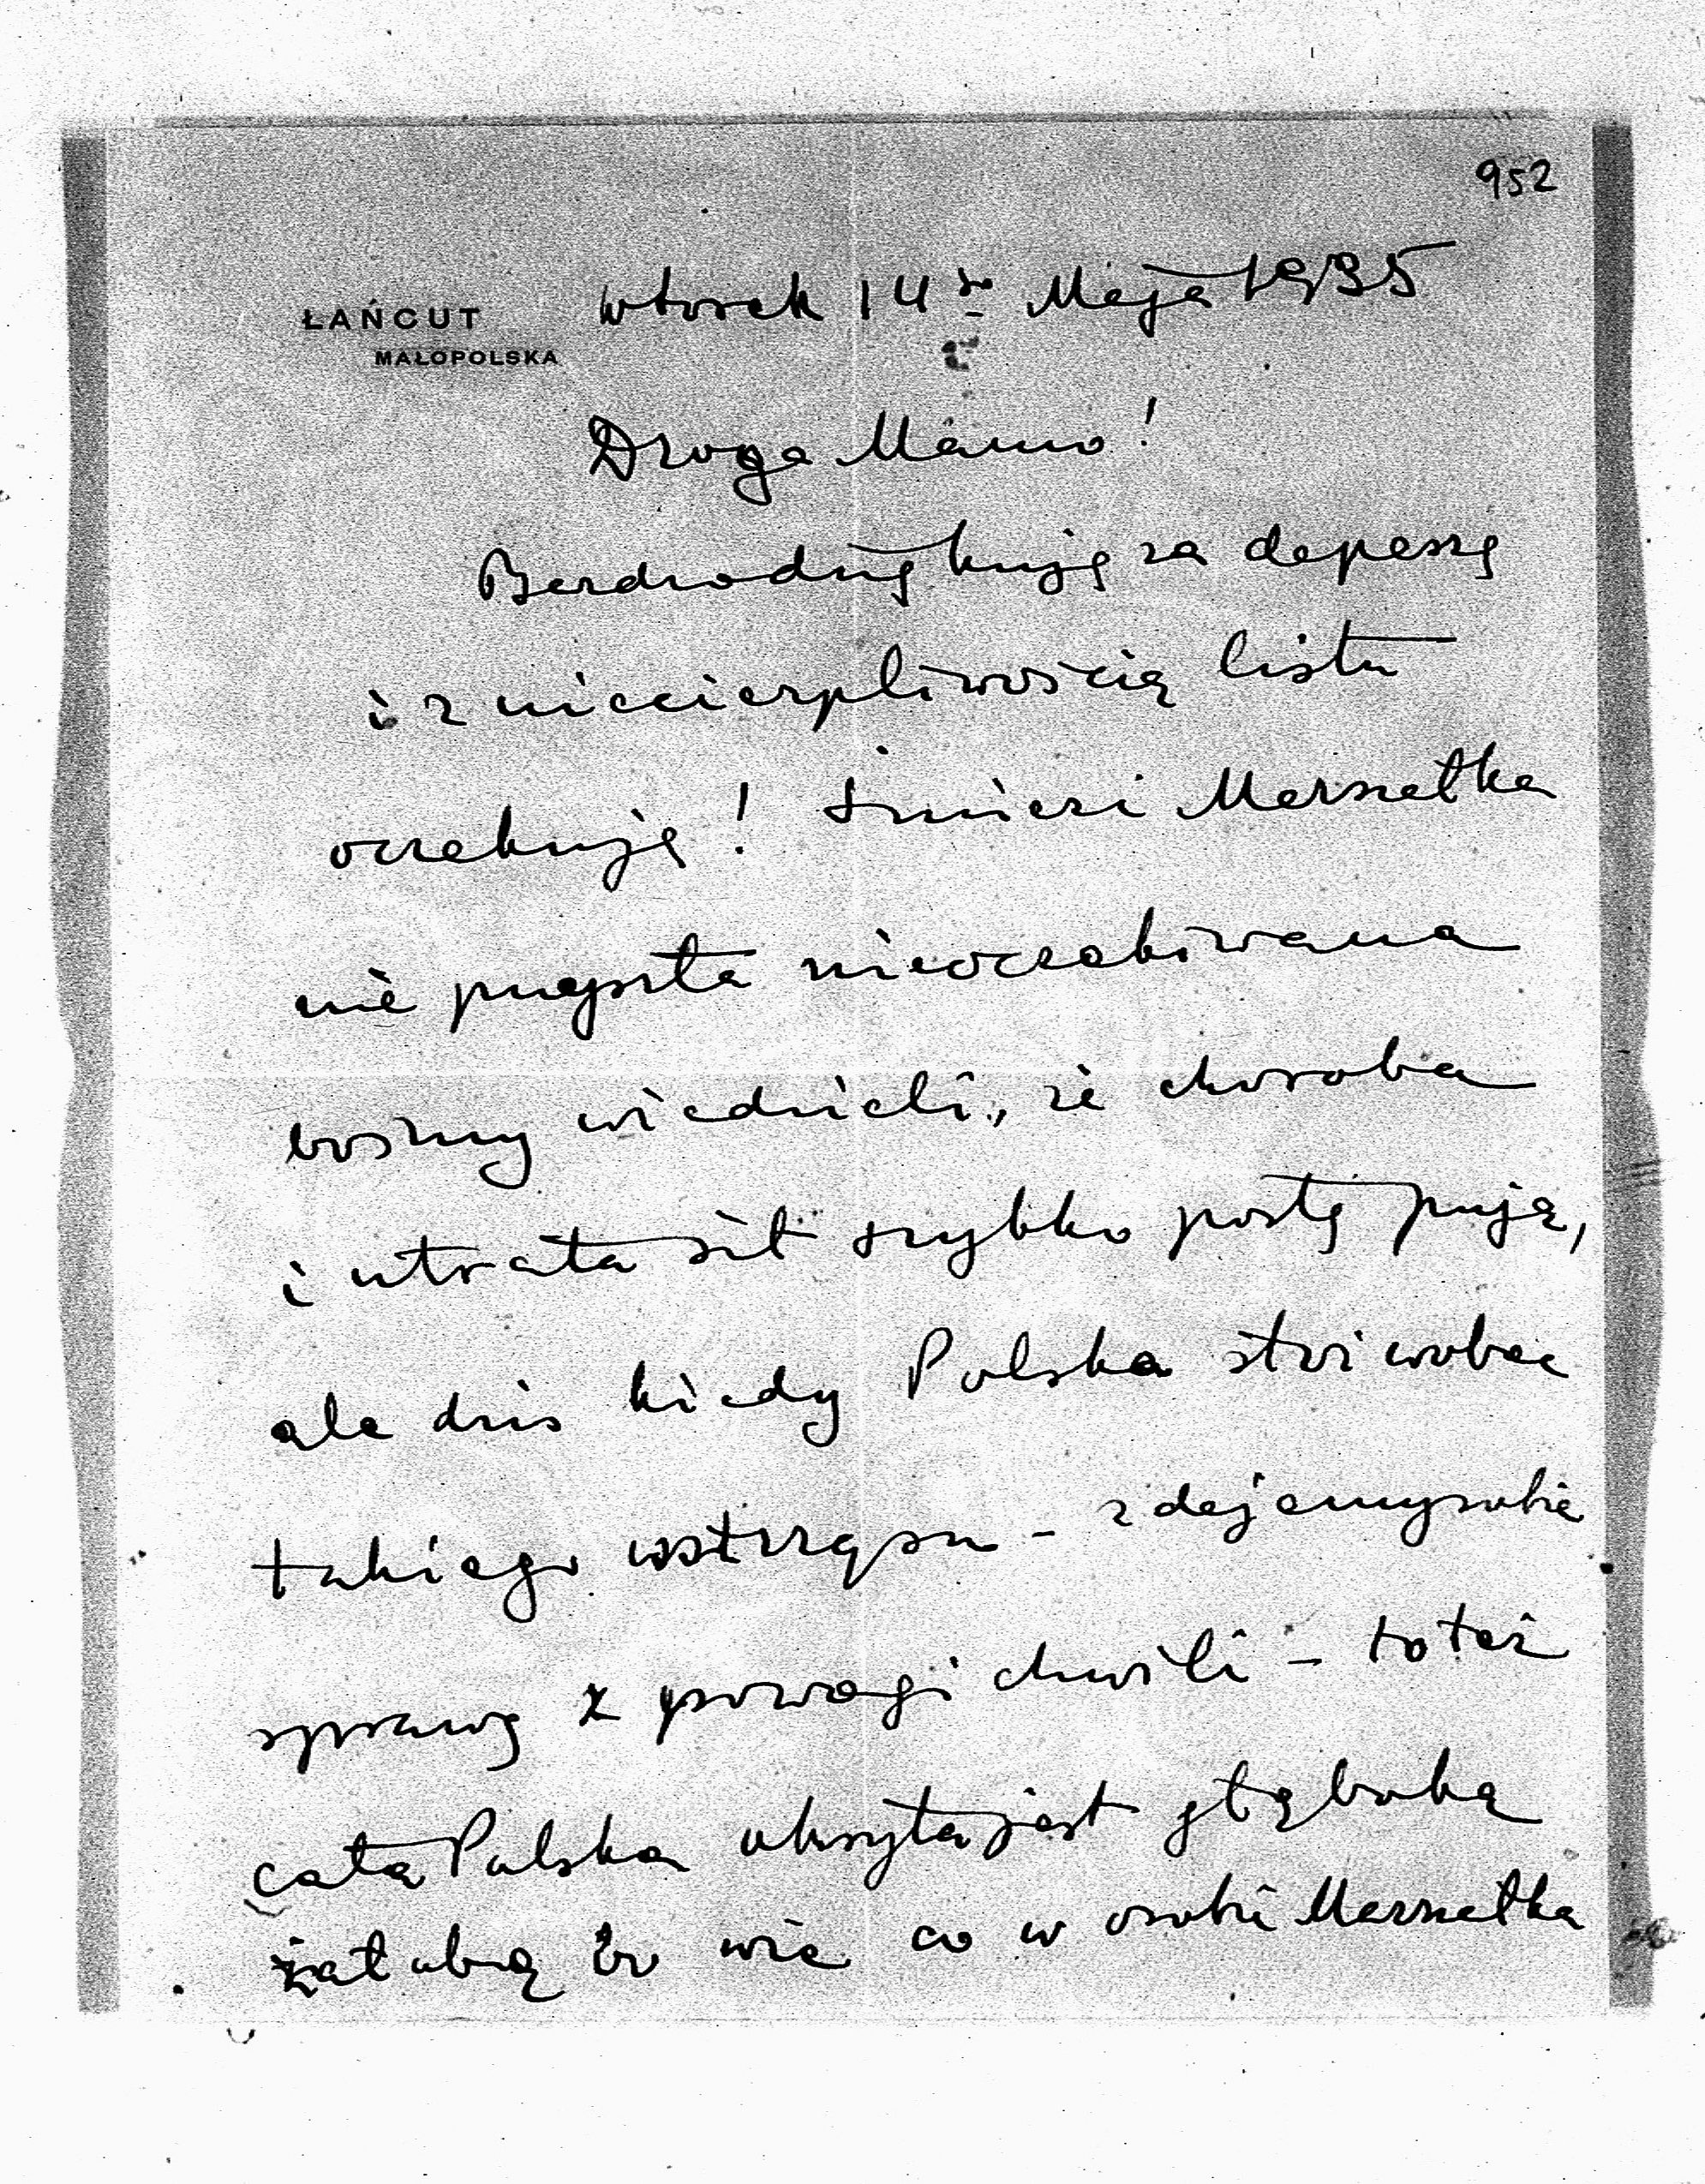 952
ŁAŃCUT wtorek 14go Maja 1935
MAŁOPOLSKA
Droga Mamo!
Bardzo dziękuję za depeszę
i z niecierpliwością listu
oczekuję! Śmierć Marszałka
nie przyszła nieoczekiwana
bośmy wiedzieli, że choroba
i utrata sił szybko postępują,
ale dziś kiedy Polska stoi wobec
takiego wstrząsu - zdajemy sobie
sprawę z powagi chwili - toteż
cała Polska okryta jest głęboką
żałobą bo wie co w osobie Marszałka